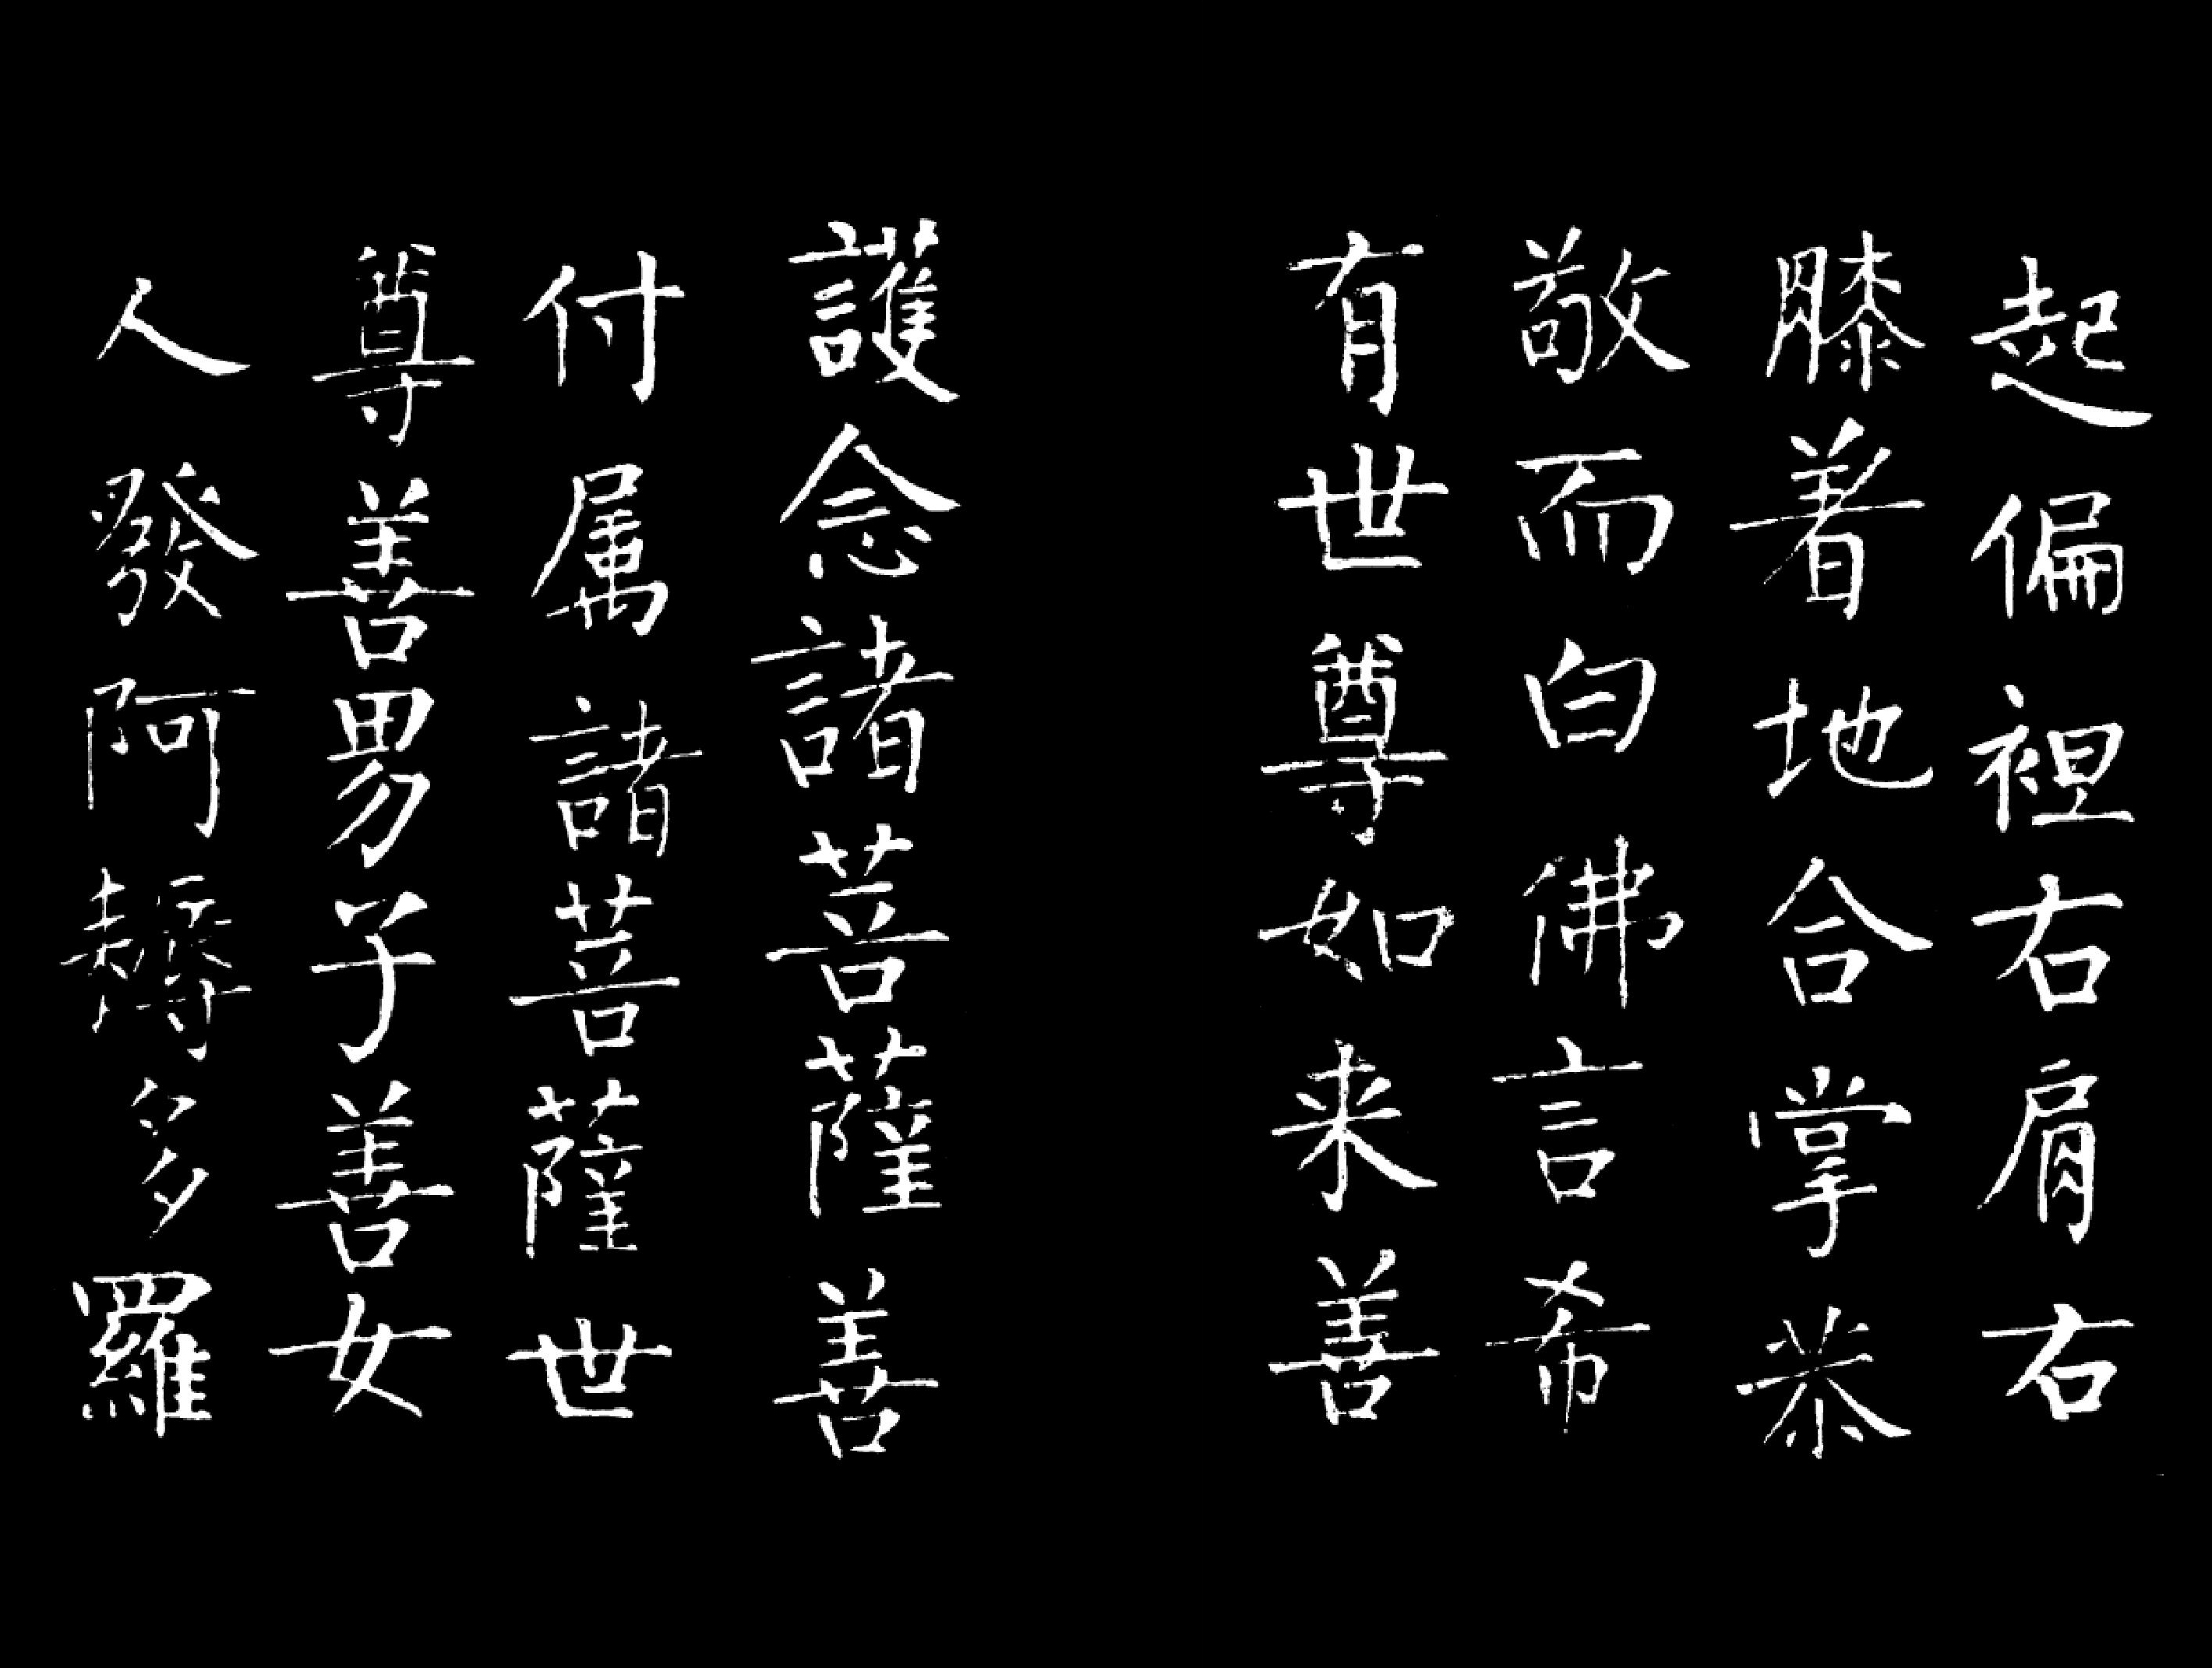 起偏袒右肩右
膝着地合掌恭
敬而白佛言希
有世尊如来善
護念諸菩薩善
付属諸菩薩世
尊善男子善女
人發阿耨多羅